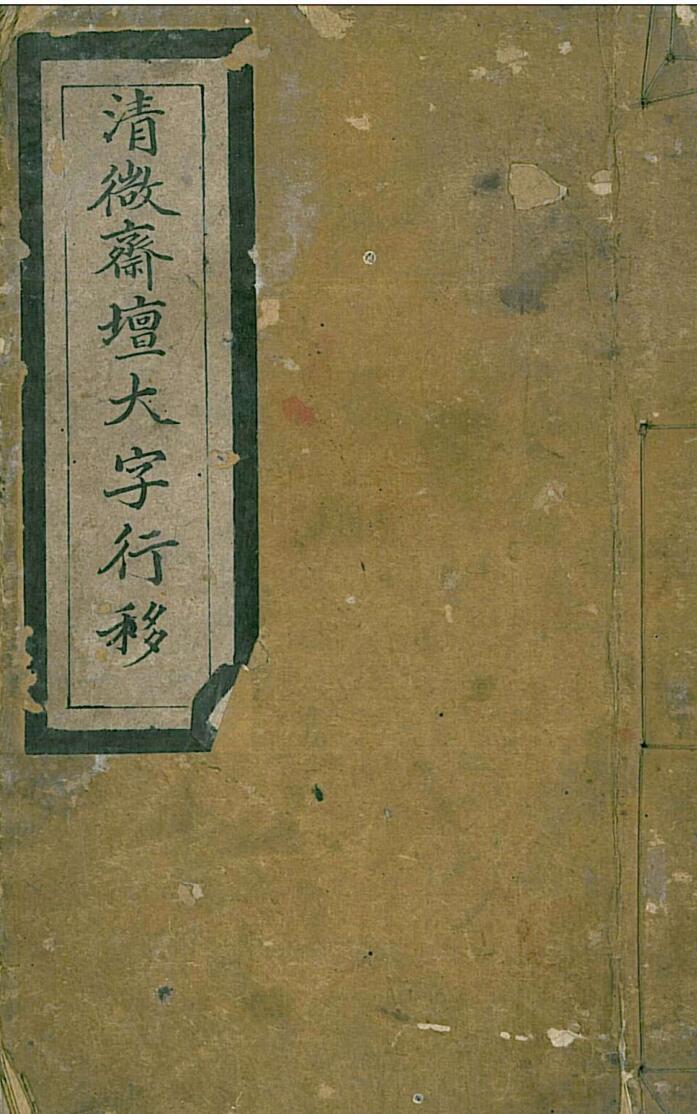 清微齋壇大字行移